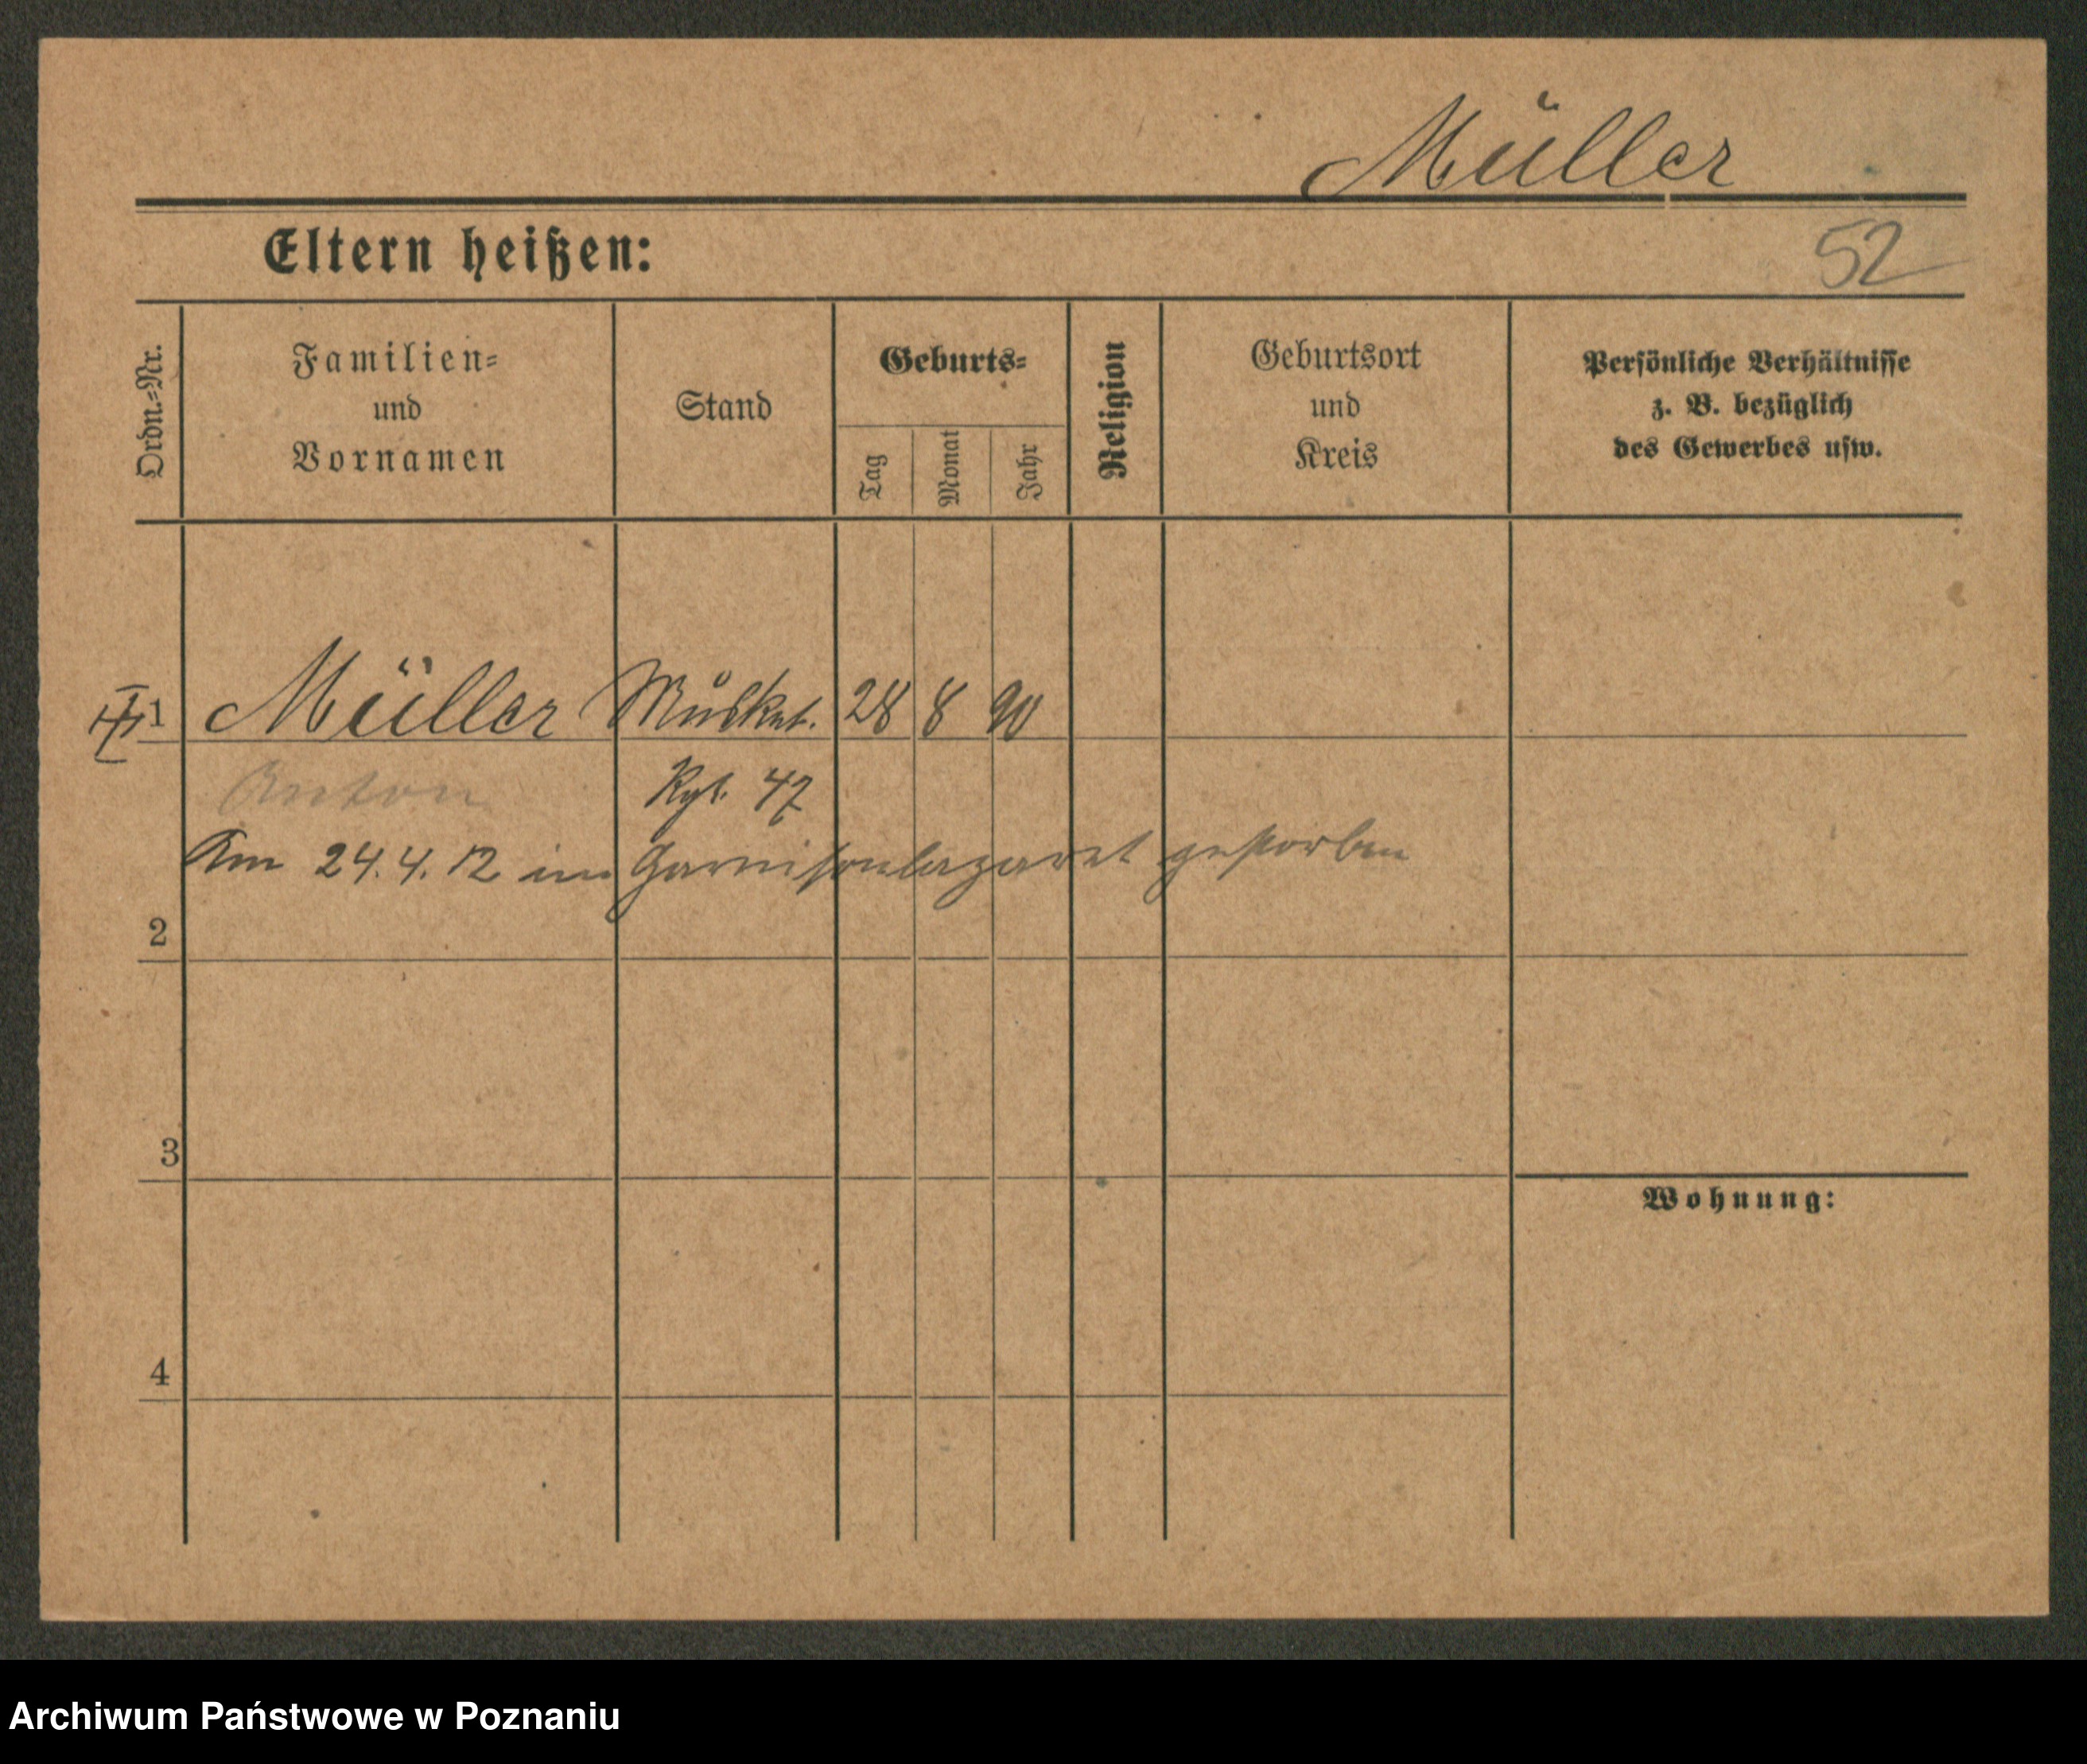 Müller
Eltern heißen:
52
Ordn.-Nr.
Familien-
und
Vornamen
Stand
Geburts-
Tag
Monat
Jahr
Religion
Geburtsort
und
Kreis
Persönliche Verhältnisse
z. B. bezüglich
des Gewerbes usw.
1 Müller Musket. 28 8 90
Anton Rgt. 47
Am 24.4.12 im Garnisonlazaret gestorben
2
3
Wohnung:
4
Archiwum Państwowe w Poznaniu